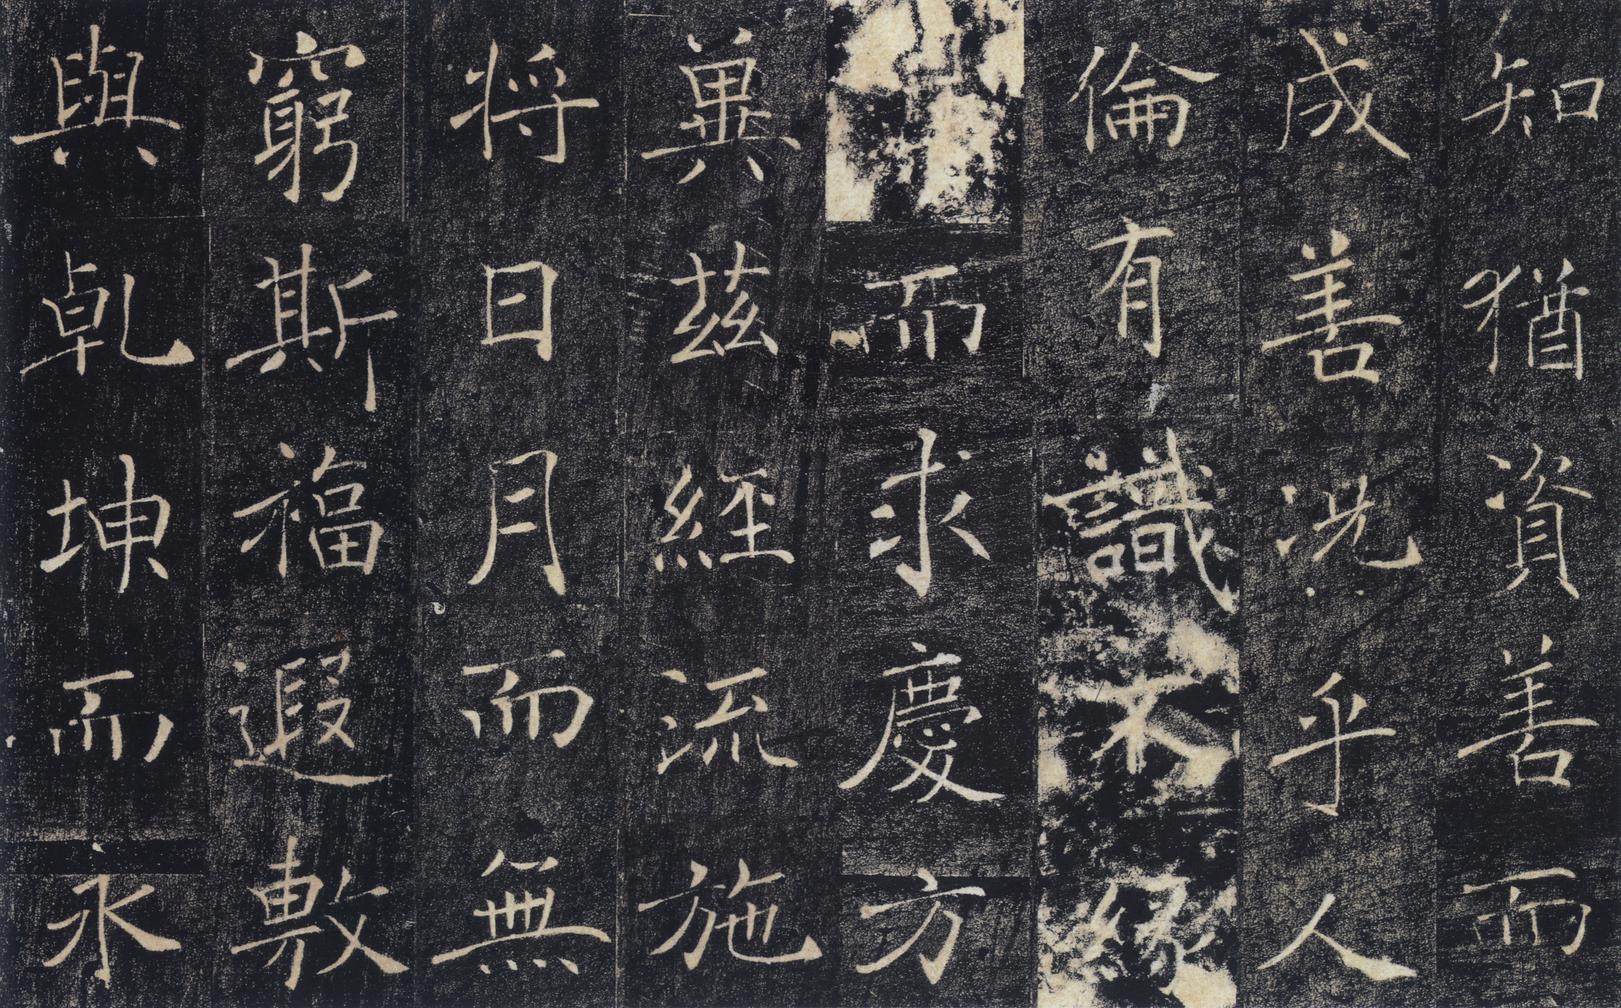 知猶資善而
成善況乎人
倫有識不緣
而求慶方
冀茲經流施
將日月而無
窮斯福遐敷
與乹坤而永